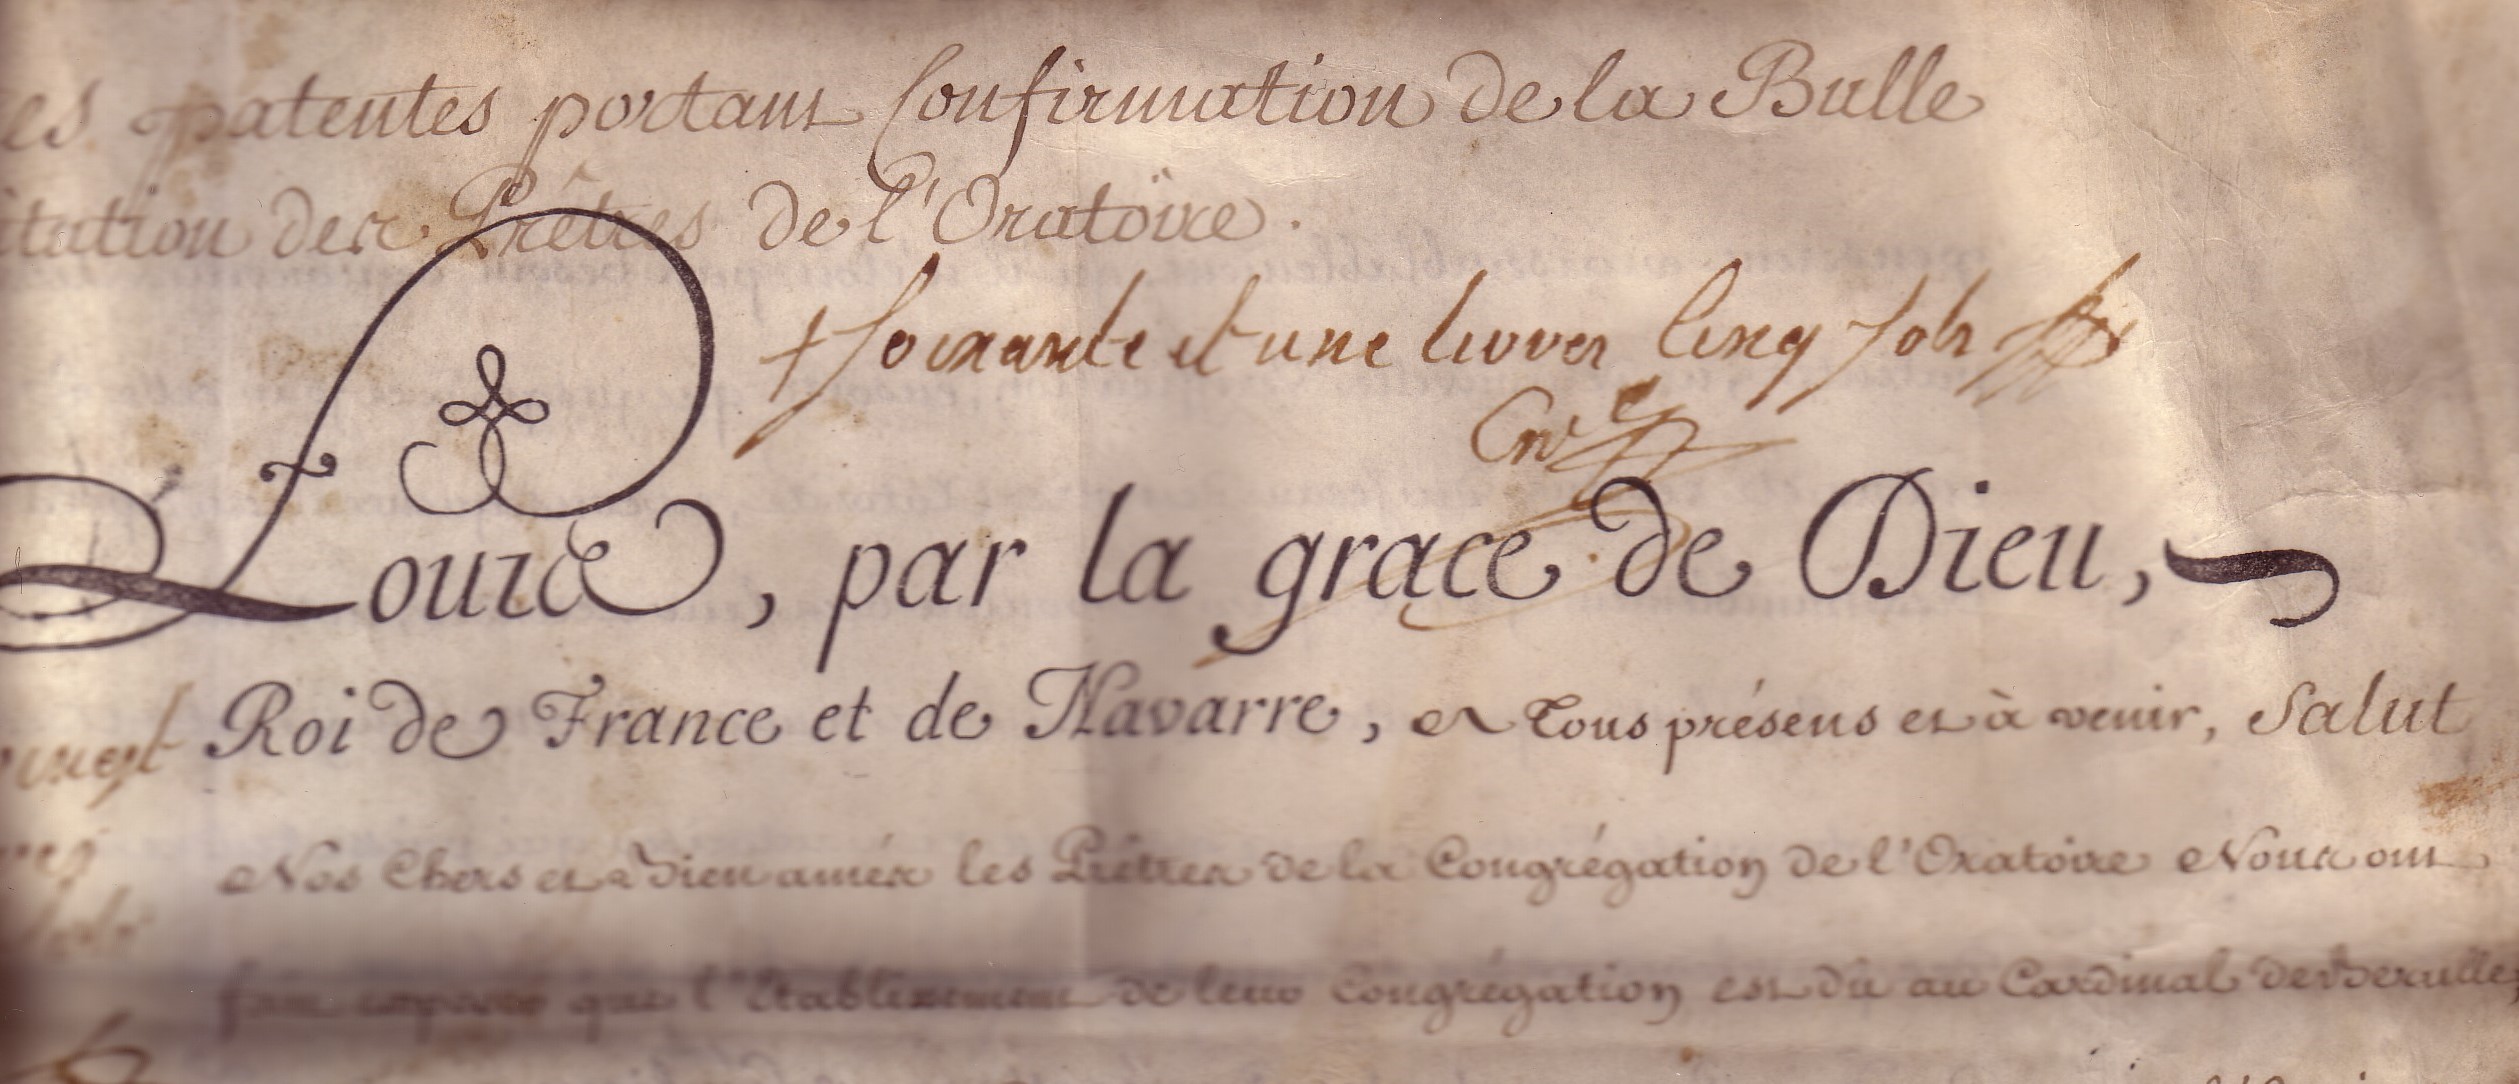 es patentes portant Confirmation de la Bulle
itution des Prêtres de l'Oratoire.
soixante et une livres cinq sols
Louis, par la grace de Dieu,
Roi de France et de Navarre, A Tous présens et à venir, Salut
Nos Chers et Bien amés les Prêtres de la Congrégation de l'Oratoire Nous ont
fait exposer que l'Etablissement de leur Congrégation est dû au Cardinal de Berulle,